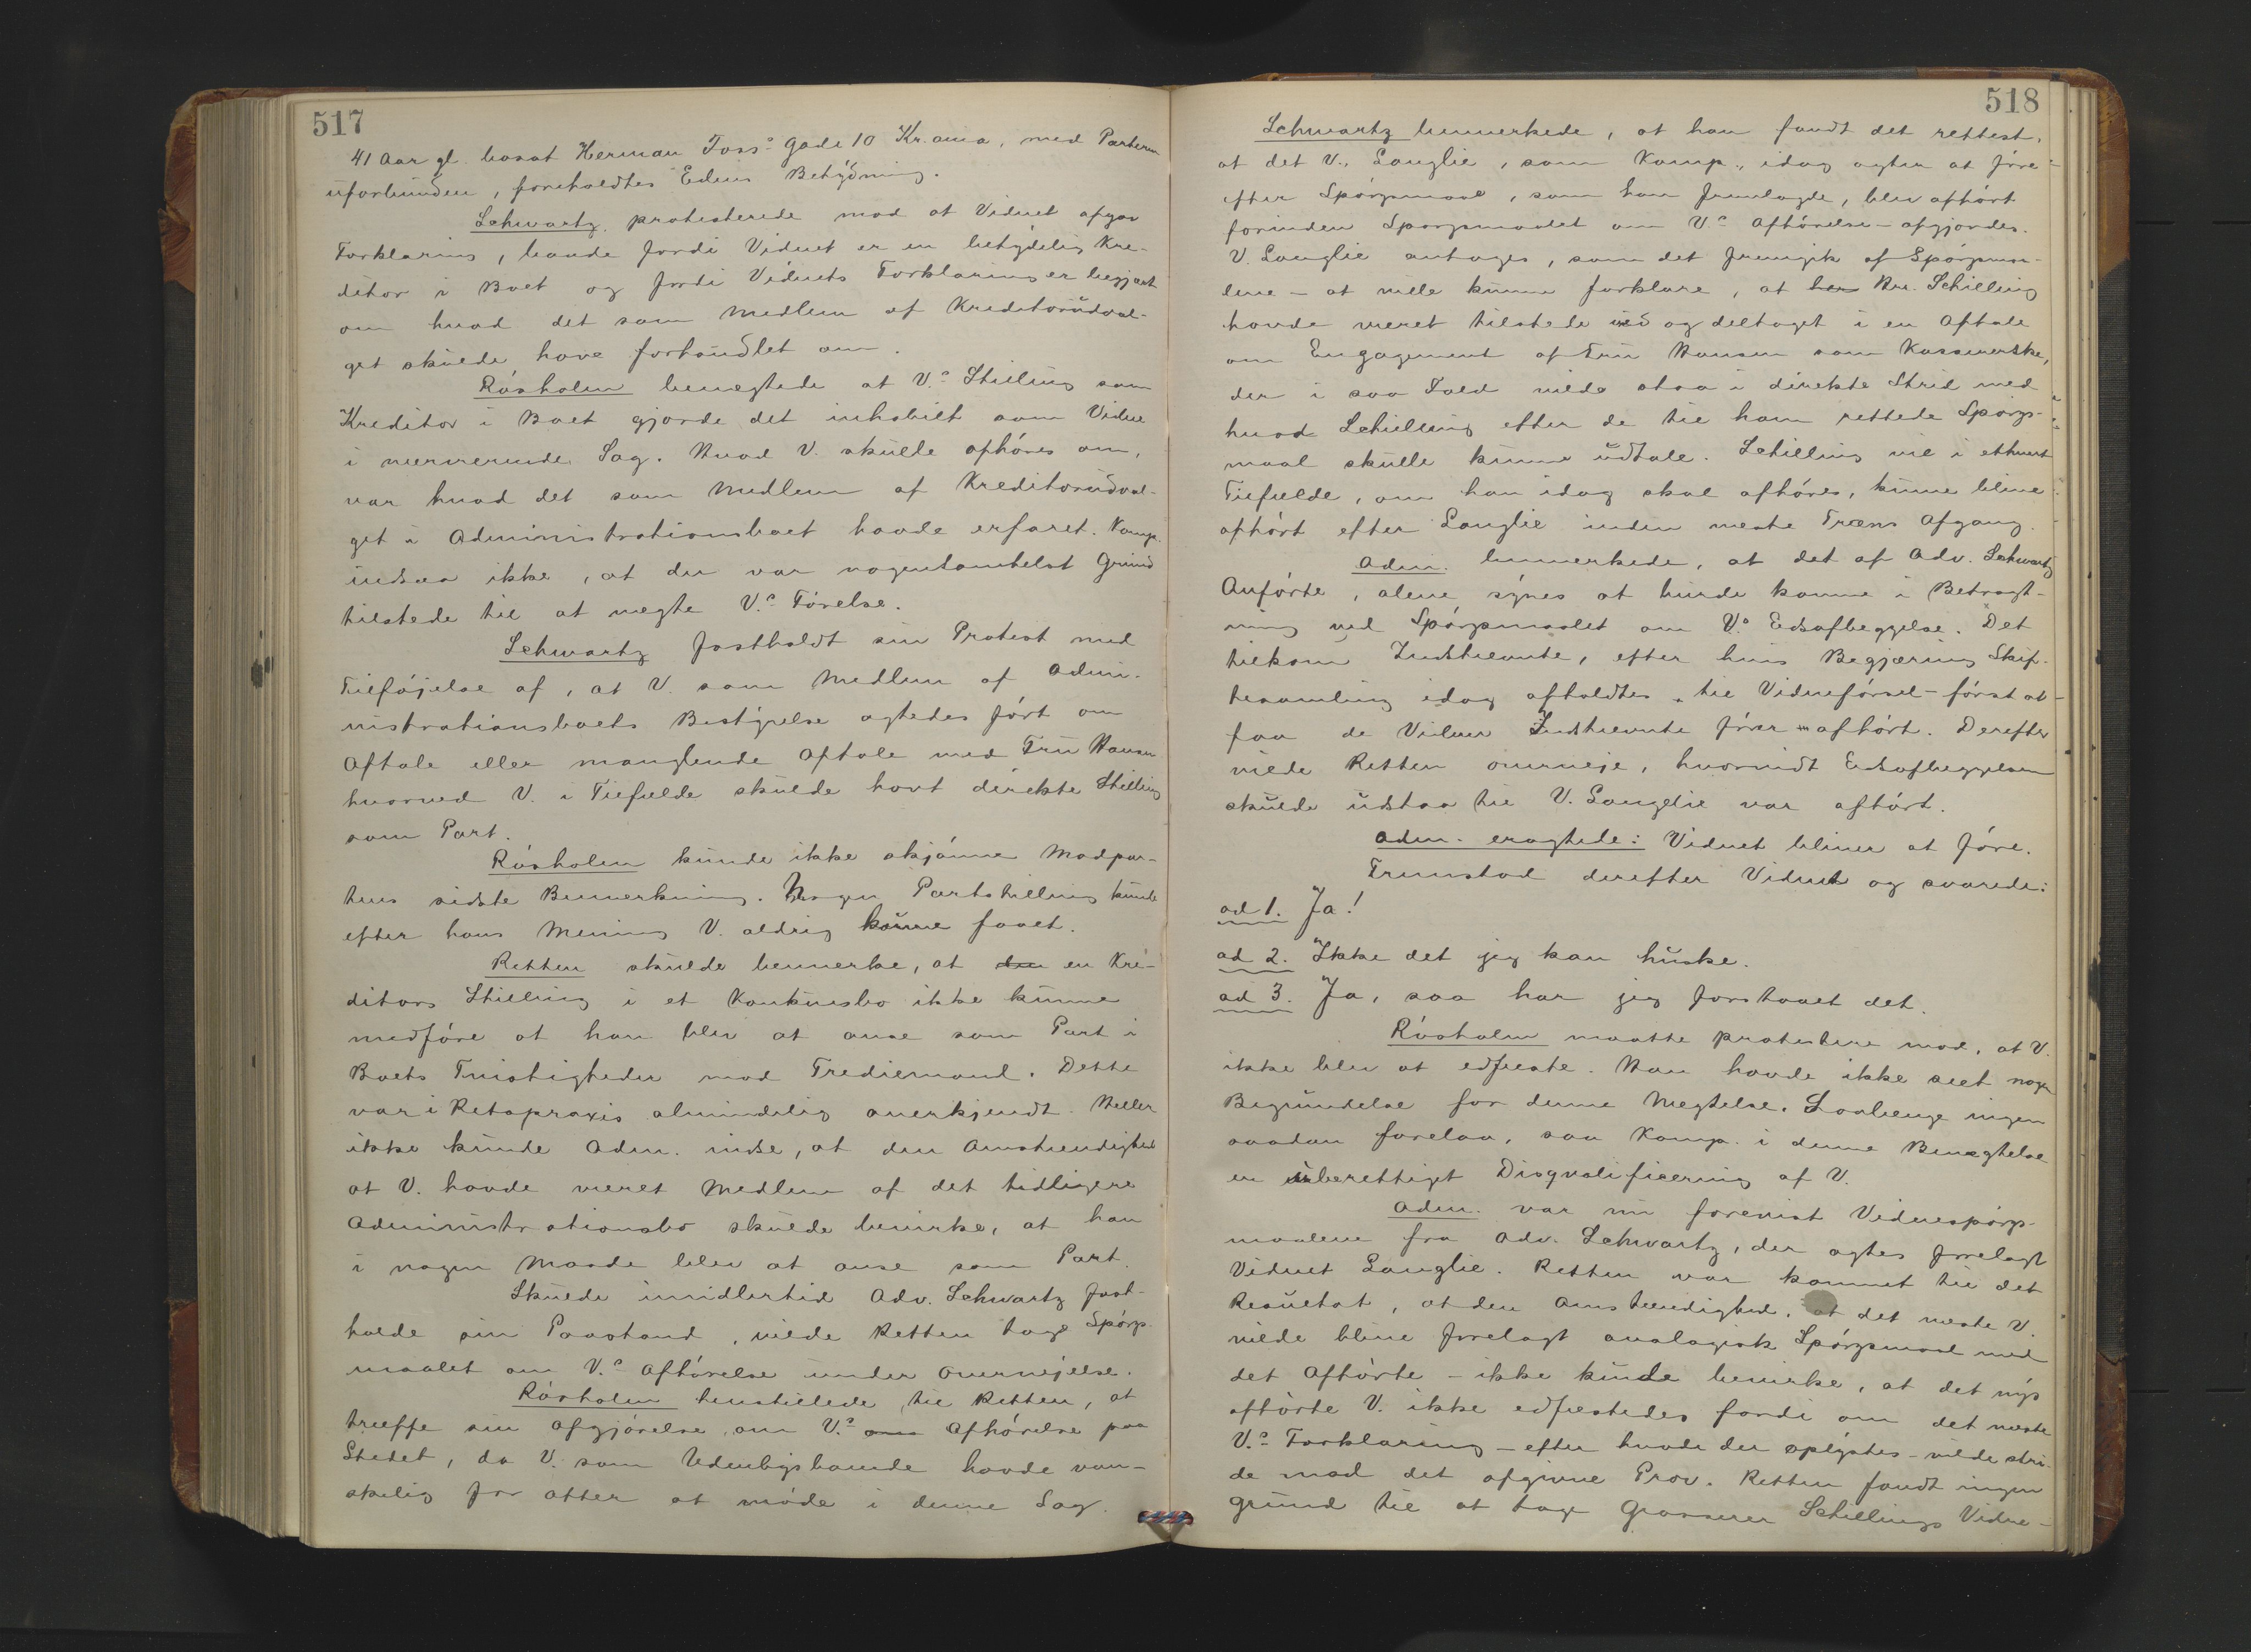 517
41 Aar gl. bosat Herman Foss' Gade 10 Kr.ania, med Parterne
uforbunden, foreholdtes Edens Betydning.
Schwartz protesterede mod at Vidnet afgav
Forklaring, baade fordi Vidnet er en betydelig Kre-
ditor i Boet og fordi Vidnets Forklaring er begjært
om hvad det som Medlem af Kreditorudval-
get skulde have forhandlet om.
Rösholm benegtede at V.s Stilling som
Kreditor i Boet gjorde det inhabilt som Vidne
i nærværende Sag. Hvad V. skulle afhöres om,
var hvad det som Medlem af Kreditorudval-
get i Administrationsboet havde erfaret. Komp.
indsaa ikke, at der var nogensomhelst Grund
tilstede til at negte V.s Förelse.
Schwartz fastholdt sin Protest med
Tilföjelse af, at V. som Medlem af Admi-
nistrationsboets Bestyrelse agtedes fört om
Aftale eller manglende Aftale med Fru Hansen
hvorved V. i Tilfælde skulde havt direkte Stilling
som Part.
Rösholm kunde ikke skjönne Modpar-
tens sidste Bemerkning. Nogen Partstilling kunde
efter hans Mening V. aldrig kunne faaet.
Retten skulde bemerke, at den en Kre-
ditors Stilling i et Konkursbo ikke kunne
medföre at han blev at anse som Part i
Boets Tvistigheder mod Trediemand. Dette
var i Retspraxis almindelig anerkjendt. Heller
ikke kunde Adm. indse, at den Omstændighed
at V. havde været Medlem af det tidligere
Administrationsbo skulde bevirke, at han
i nogen Maade blev at anse som Part.
Skulde imidlertid Adv. Schwartz fast-
holde sin Paastand, vilde Retten tage Spörgs-
maalet om V.s Afhörelse under Overveielse.
Rösholm henstillede til Retten, at
træffe sin Afgjörelse om V.s om Afhörelse paa
Stedet, da V. som Udenbysboende havde van-
skelig for atter at möde i denne Sag.
518
Schwartz bemerkede, at han fandt det rettest,
at det V., Langlie, som Komp., idag agter at före
efter Spörgsmaal, som han fremlagde, blev afhört
forinden Spörgsmaalet om V.s Afhörelse afgjordes.
V. Langlie antoges, som det fremgik af Spörgsmaa-
lene – at ville kunne forklare, at han Hr. Schilling
havde været tilstede ved og deltaget i en Aftale
om Engagement af Fru Hansen som Kassererske,
der i saa Fald vilde staa i direkte Strid med
hvad Schilling efter de til ham rettede Spörgs-
maal skulle kunne udtale. Schilling vil i ethvert
Tilfælde, om han idag skal afhöres, kunne blive
afhört efter Langlie inden neste Træns Afgang.
Adm. bemerkede, at det af Adv. Schwartz
Anförte, alene synes at burde komme i Betragt-
ning ved Spörgsmaalet om V.s Edsaflæggelse. Det
tilkom Indstevnte, efter hvis Begjæring Skif-
tesamling idag afholdtes til Vidneförsel – först at
faa de Vidner Indstevnte förer afhört. Derefter
vilde Retten overveje, hvorvidt Edsaflæggelsen
skulde udstaa til V. Langlie var afhört.
Adm. eragtede: Vidnet bliver at före.
Fremstod derefter Vidnet og svarede:
ad 1. Ja!
ad 2. Ikke det jeg kan huske.
ad 3. Ja, saa har jeg forstaaet det.
Rösholm maatte protestere mod, at V.
ikke blev at edfæste. Han havde ikke seet nogen
Begrundelse for denne Negtelse. Saalænge ingen
saadan forelaa, saa Komp. i denne Benegtelse
en uberettiget Disqvalificering af V.
Adm. var nu forevist Vidnespörgs-
maalene fra Adv. Schwartz, der agtes forelagt
Vidnet Langlie. Retten var kommet til det
Resultat, at den Omstændighed, at det neste V.
vilde blive forelagt analogisk Spörgsmaal med
det Afhörte – ikke kunde bevirke, at det nys
afhörte V. ikke edfæstedes fordi om det neste
V.s Forklaring – efter hvad der oplystes – vilde stri-
de mod det afgivne Prov. Retten fandt ingen
Grund til at tage Grosserer Schillings Vidne-